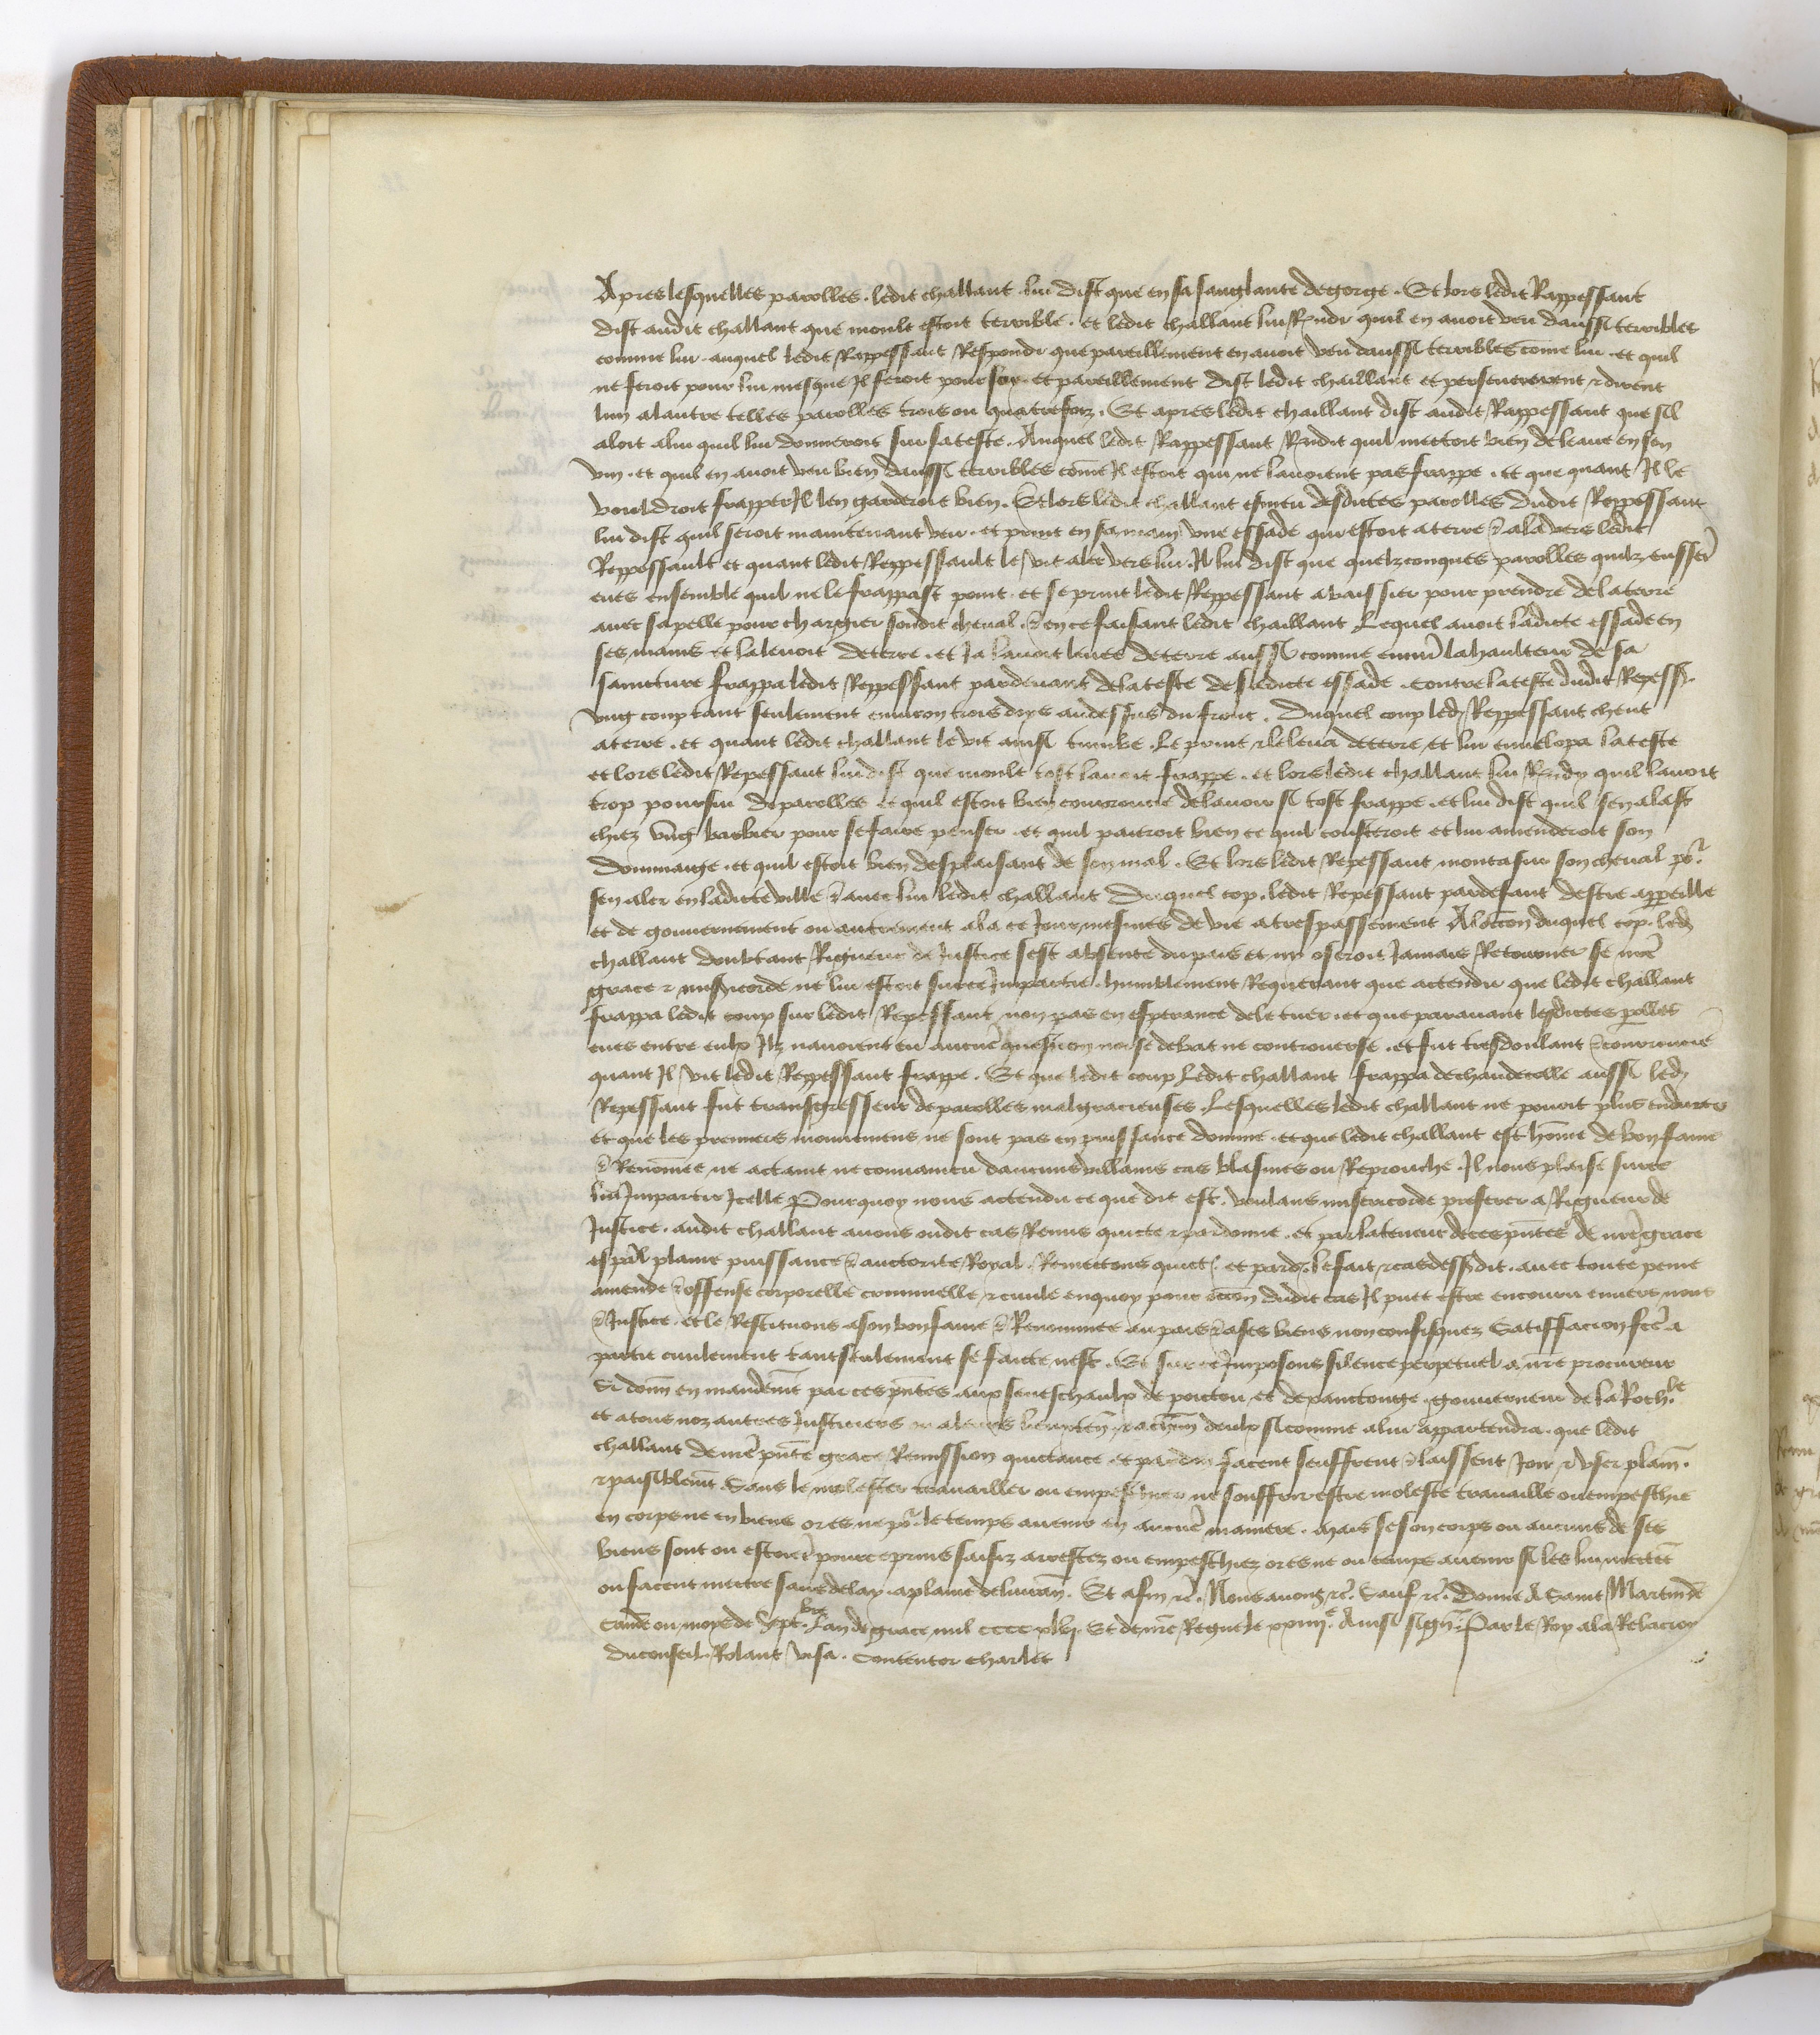 Apres lesquelles parolles . ledit challant lui dist que en sa sanglante degorge . Et lors ledit Rappessant
dist audit challant que moult estoit terrible . et ledit challant lui Rndi quil en avoit veu daussi terribles
comme lui . auquel ledit Rappessant Respondi que pareillement en avoit veu daussi terribles come lui . et quil
ne feroit pour lui mesque Il feroit pour soy . et pareillement dist ledit chaillant et perseuererent & dirent
lun alautre telles parolles trois ou quatre foiz . Et apres ledit chaillant dist audit Rappessant que sil
aloit alui quil lui donneroit sur sa teste . Auquel ledit Rappessant Rndit quil mettoit bien de leaue en son
vin . et quil en avoit veu bien daussi terribles come Il estoit qui ne lavoient pas frappe . et que quant Il le
vouldroit frapper Il len garderoit bien . Et lors ledit challant esmeu desdictes parolles dudit Reppessant
lui dist quil seroit maintenant veu . et print en sa main une essade qui estoit a terre & ala vers ledit
Reppessault et quant ledit Reppessault le vit aler vers lui . Il lui dist que quelzconques parolles quilz eussēt
eues ensemble quil ne le frappast point . et se print ledit Reppessant abaissier pour prendre de la terre
avec sa pelle pour chargier sondit cheval . & en ce faisant ledit chaillant Lequel avoit ladicte essade en
ses mains et la levoit de terre . et Ja lavoit levee de terre aussi comme envirō la haulteur de sa
saincture frappa ledit Reppessant par devant de la teste de ladicte essade . contre la teste dudit Repess.
ung coup tant seulement environ trois dois au dessus du front . Duquel coup led Reppessant cheut
a terre . et quant ledit challant le vit ainsi tumbe . Le print & leleva de terre et lui envelopa la teste
et lors ledit Repessant lui dist que moult tost lavoit frappe . et lors ledit challant lui Rndy quil lavoit
trop poursui de parolles et quil estoit bien courroucie de lavoir si tost frappe . et lui dist quil sen alast
chiez ung barbier pour se faire penser . et quil paieroit bien ce quil cousteroit et lui amenderoit son
dommaige . et quil estoit bien desplaisant de son mal . Et lors ledit Repessant monta sur son cheval pō.
sen aler en ladicte ville & avec lui ledit challant Duquel cop . ledit Repessant par default destre appareille
et de gouvernement ou autrement ala ce Jour mesmes de vie a trespassement A loccōn duquel cop . led
challant doubtant Rigueur de Justice sest absente du pais et ny oseroit Jamais Retourner se nrē
grace & misericorde ne lui estoit sur ce Impartie . humblement Requerant que actendu que ledit challant
frappa ledit coup sur ledit Repessant non pas en esperance de le tuer . et que paravant lesdictes parolles
eues entre eulx Ilz navoient eu aucunē question noise debat ne controverse . et fut tresdoulant & courroucie
quant Il vit ledit Reppessant frappe . Et que ledit coup Ledit challant frappa de chaudecolle aussi led
Repessant fut transgresseur de parolles malgracieuses . Lesquelles ledit challant ne povoit plus endurer
et que les premiers mouvemens ne sont pas en puissance domme . et que ledit challant est home de bon fame
& Renommee ne actaint ne convaincu daucuns villains cas blasmes ou Reprouche . Il nous plaise sur ce
lui Impartir Icelle Pourquoy nous actendu ce que dit est . voulans misericorde preferer a Rigueur de
Justice . audit challant avons oudit cas Remis quicte & pardonne . et par la teneur de ces pntes De nrē grace
espāl plaine puissance & auctorite Royal . Remettons quict. et pard. le fait & cas dessusdit . avec toute peine
amende & offense corporelle criminelle & civile en quoy pour occōn dudit cas Il puet estre encouru envers nous
& Justice . et le Restituons a son bon fame & Renommee au pais & a ses biens non confisquez Satiffacion fcē a
partie civilement tant seulement se faicte nest . Et sur ce Imposons silence perpetuel a nrē procureur
Si donn en mandemt par ces pntes aux seneschaulx de poictou . et de xanctonge . gouverneur de la Roch.le
et a tous noz autres Justiciers ou a leurs lieuxten. & a chūn deulx si comme a lui appartendra . que ledit
challant de nrē pnte grace Remission quictance et pardon facent seuffrent & laissent Joir & user plain.
& paisiblemt . Sans le molester travailler ou empescher ne souffrir estre moleste travaille ou empeschie
en corps ne en biens ores ne pō. le temps avenir en aucunē maniere . mais se son corps ou aucuns de ses
biens sont ou estoiēt pour ce prins saisiz arrestez ou empeschiez ores ne ou temps avenir si les lui mettēt
ou facent mettre sans delay . a plaine delivran. Et afin &c. Nous avons &c. Sauf &c. Donne A Saint Martin de
Cande ou moys de Septbre . Lan de grace mil cccc xlvj. Et de nrē Regne le xxiiije. Ainsi sign. Par le Roy a la Relacion
du conseil . Rolant Visa . Contentor Charlet